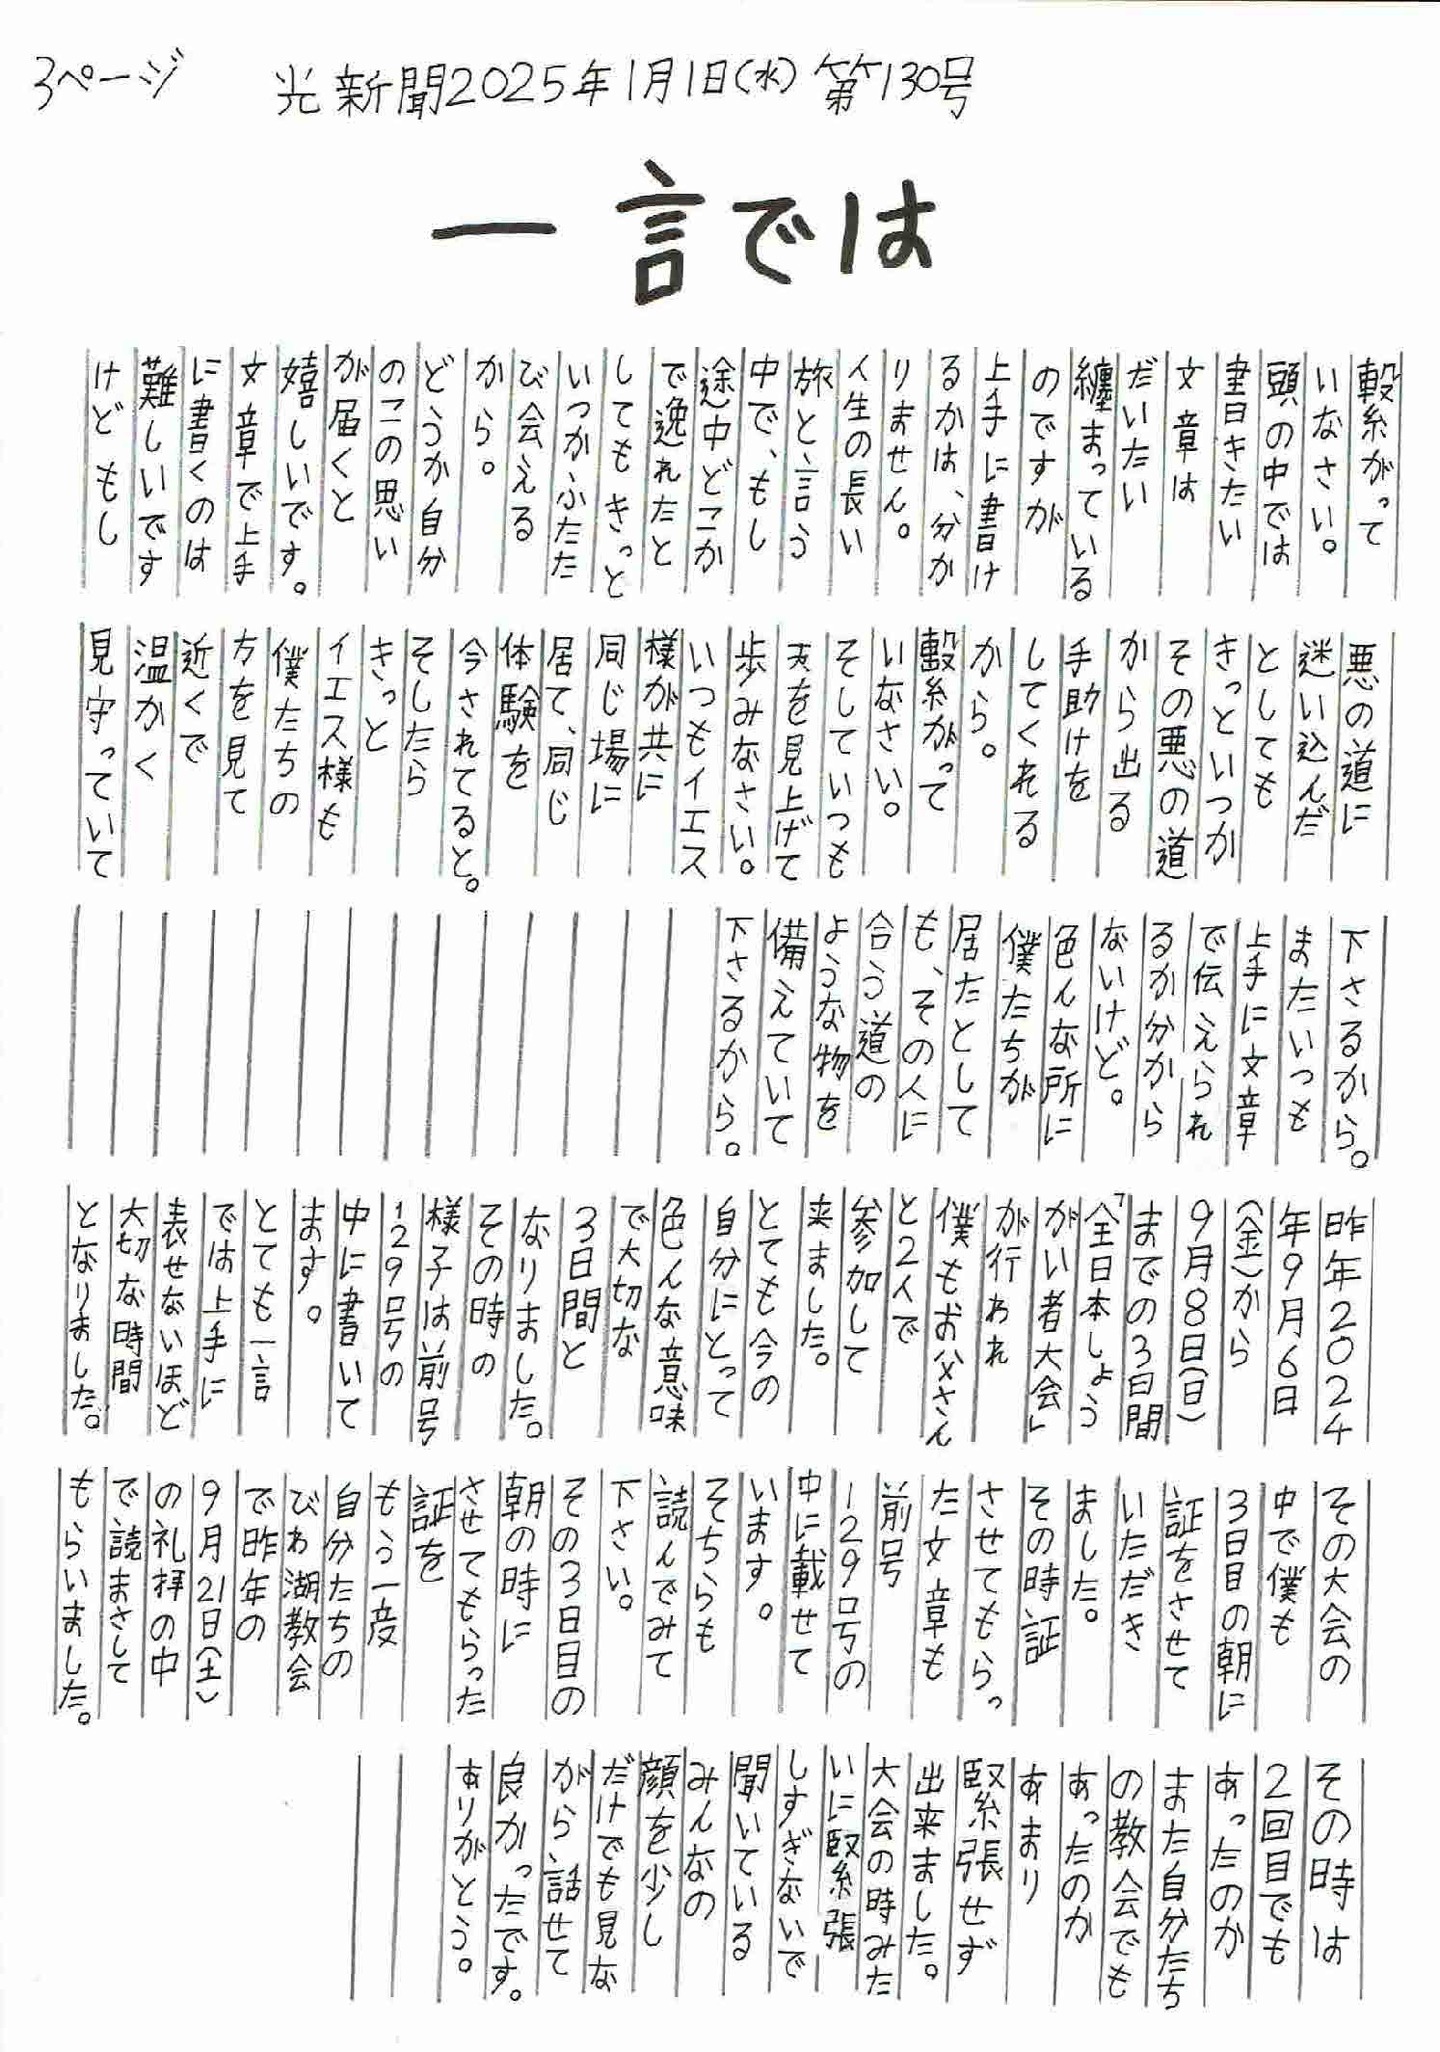 3ページ
光新聞2025年1月1日(水)第130号
一言では
繋がって
いなさい。
頭の中では
書きたい
文章は
だいたい
纏まっている
のですが
上手に書け
るかは、分か
りません。
人生の長い
旅と言う
中で、もし
途中どこか
で逸れたと
してもきっと
いつかふたた
び会える
から。
どうか自分
のこの思い
が届くと
嬉しいです。
文章で上手
に書くのは
難しいです
けどもし
悪の道に
迷い込んだ
としても
きっといつか
その悪の道
から出る
手助けを
してくれる
から。
繋がって
いなさい。
そしていつも
天を見上げて
歩みなさい。
いつもイエス
様が共に
同じ場に
居て、同じ
体験を
今されてると。
そしたら
きっと
イエス様も
僕たちの
方を見て
近くで
温かく
見守っていて
下さるから。
またいつも
上手に文章
で伝えられ
るか分から
ないけど。
色んな所に
僕たちが
居たとして
も、その人に
合う道の
ような物を
備えていて
下さるから。
昨年2024
年9月6日
(金)から
9月8日(日)
までの3日間
「全日本しょう
がい者大会」
が行われ
僕もお父さん
と2人で
参加して
来ました。
とても今の
自分にとって
色んな意味
で大切な
3日間と
なりました。
その時の
様子は前号
129号の
中に書いて
ます。
とても一言
では上手に
表せないほど
大切な時間
となりました。
その大会の
中で僕も
3日目の朝に
証をさせて
いただき
ました。
その時証
させてもらっ
た文章も
前号
129号の
中に載せて
います。
そちらも
読んでみて
下さい。
その3日目の
朝の時に
させてもらった
証を
もう一度
自分たちの
びわ湖教会
で昨年の
9月21日(土)
の礼拝の中
で読まさして
もらいました。
その時は
2回目でも
あったのか
また自分たち
の教会でも
あったのか
あまり
緊張せず
出来ました。
大会の時みた
いに緊張
しすぎないで
聞いている
みんなの
顔を少し
だけでも見な
がら話せて
良かったです。
ありがとう。